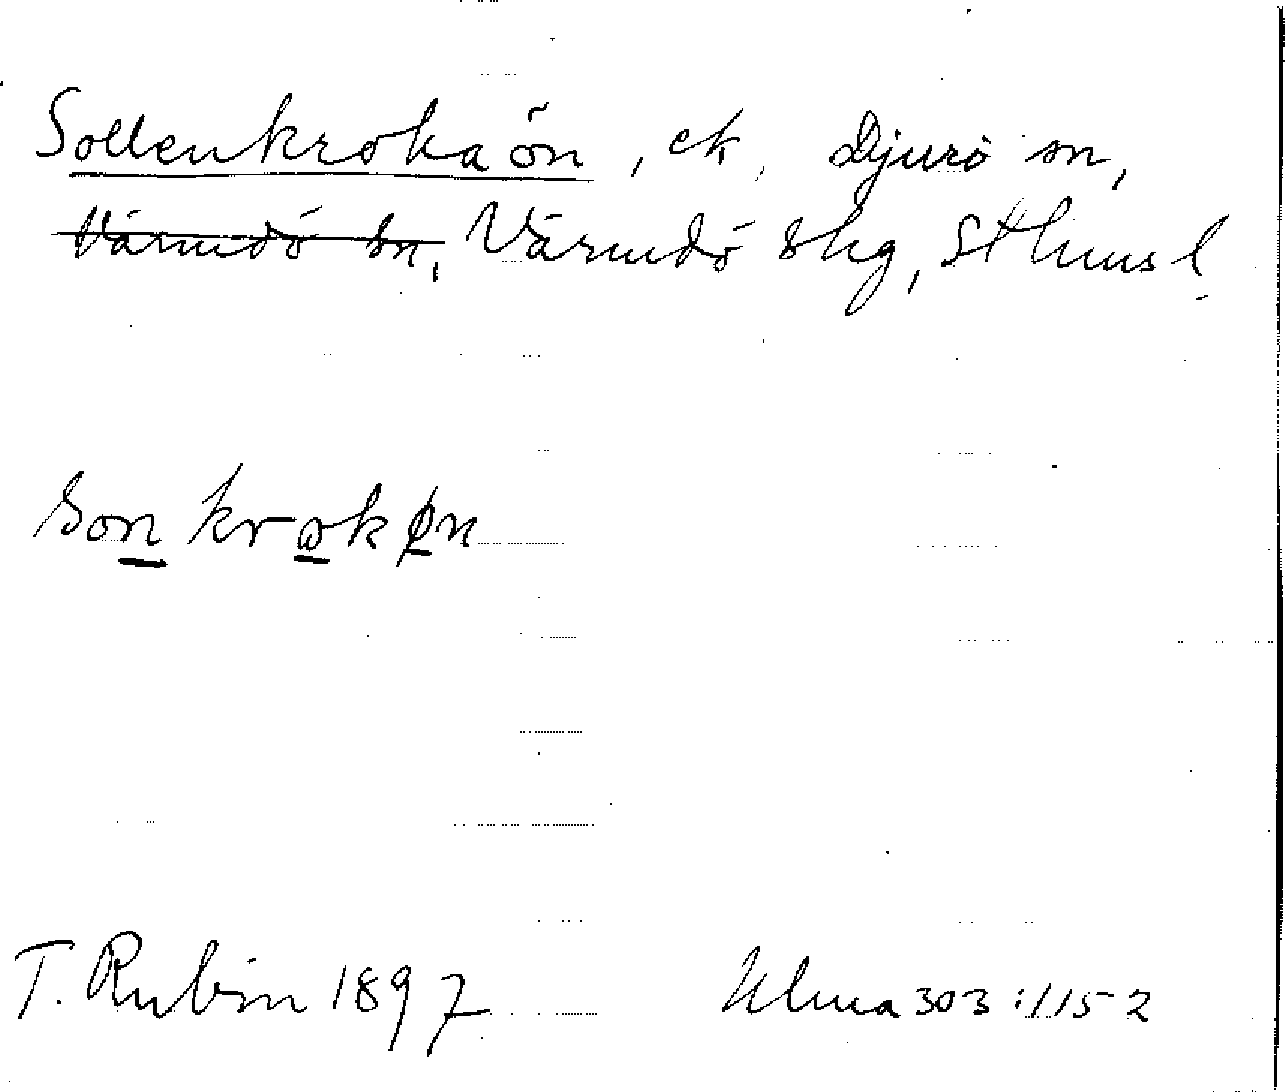 Sollenkrokaön, ek, Djurö sn,
Värmdö sn, Värmdö skg, Sthms l.
son krokøn
T. Rubin 1897 Ulma 303:1152